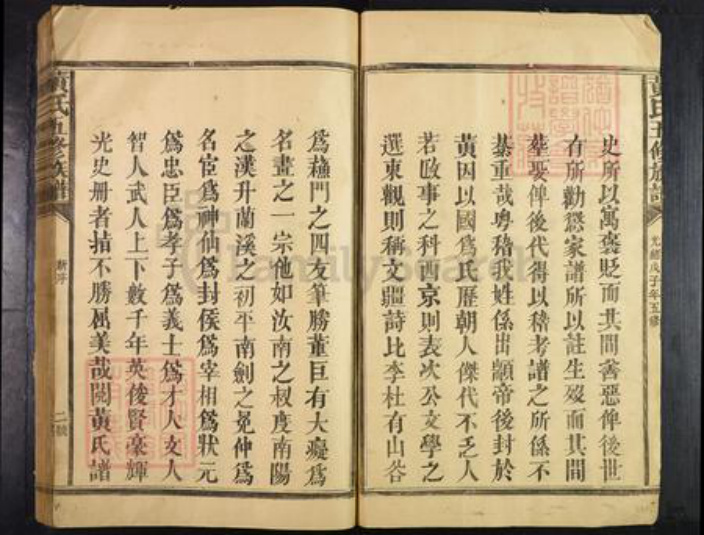 黃氏五修族譜
光緒戊子年五修
史所以寓褒貶而其間善惡俾後世
有所勸懲家譜所以註生歿而其間
塋娶俾後代得以稽考譜之所係不
綦重哉粵稽我姓係出顓帝後封於
黃因以國爲氏歷朝人傑代不乏人
若政事之科西京則表次公文學之
選東觀則稱文疆詩比李杜有山谷
爲蘓門之四友筆勝董巨有大癡爲
名畫之一宗他如汝南之叔度南陽
之漢升蘭溪之初平南劍之冕仲爲
名宦爲神仙爲封侯爲宰相爲狀元
爲忠臣爲孝子爲義士爲才人文人
智人武人上下數千年英俊賢豪輝
光史册者指不勝屈美哉閎黃氏譜
黃氏五修族譜
新序
二號
FamilySearch